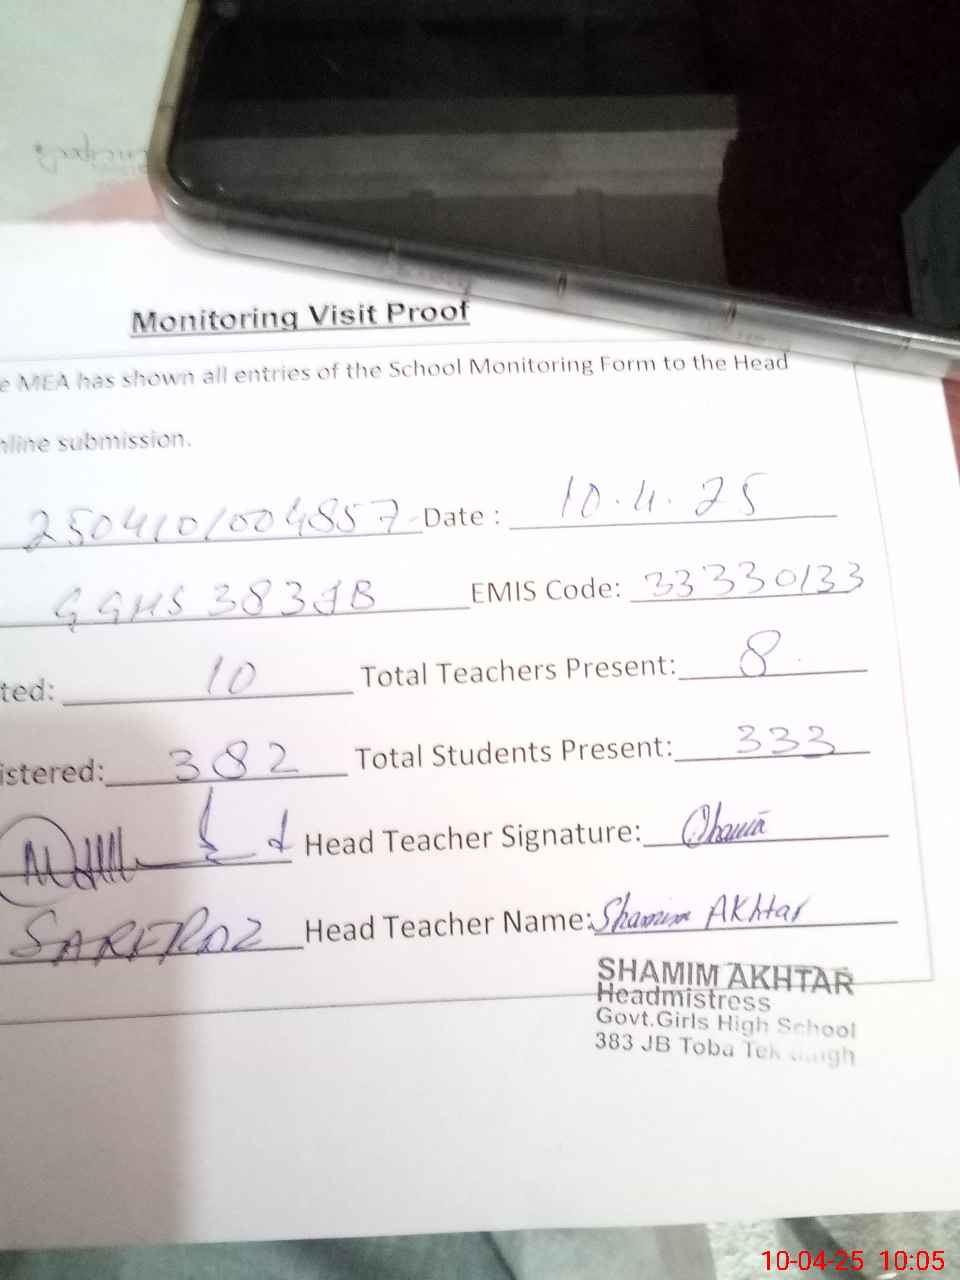 Monitoring Visit Proof
e MEA has shown all entries of the School Monitoring Form to the Head
nline submission.
2504101004857 Date : 10.4.25
GGHS 383JB EMIS Code: 33330133
ted: 10 Total Teachers Present: 8
istered: 382 Total Students Present: 333
Head Teacher Signature: Shamim
SARFRAZ Head Teacher Name: Shamim AKhtar
SHAMIM AKHTAR
Headmistress
Govt.Girls High School
383 JB Toba Tek Singh
10-04-25 10:05